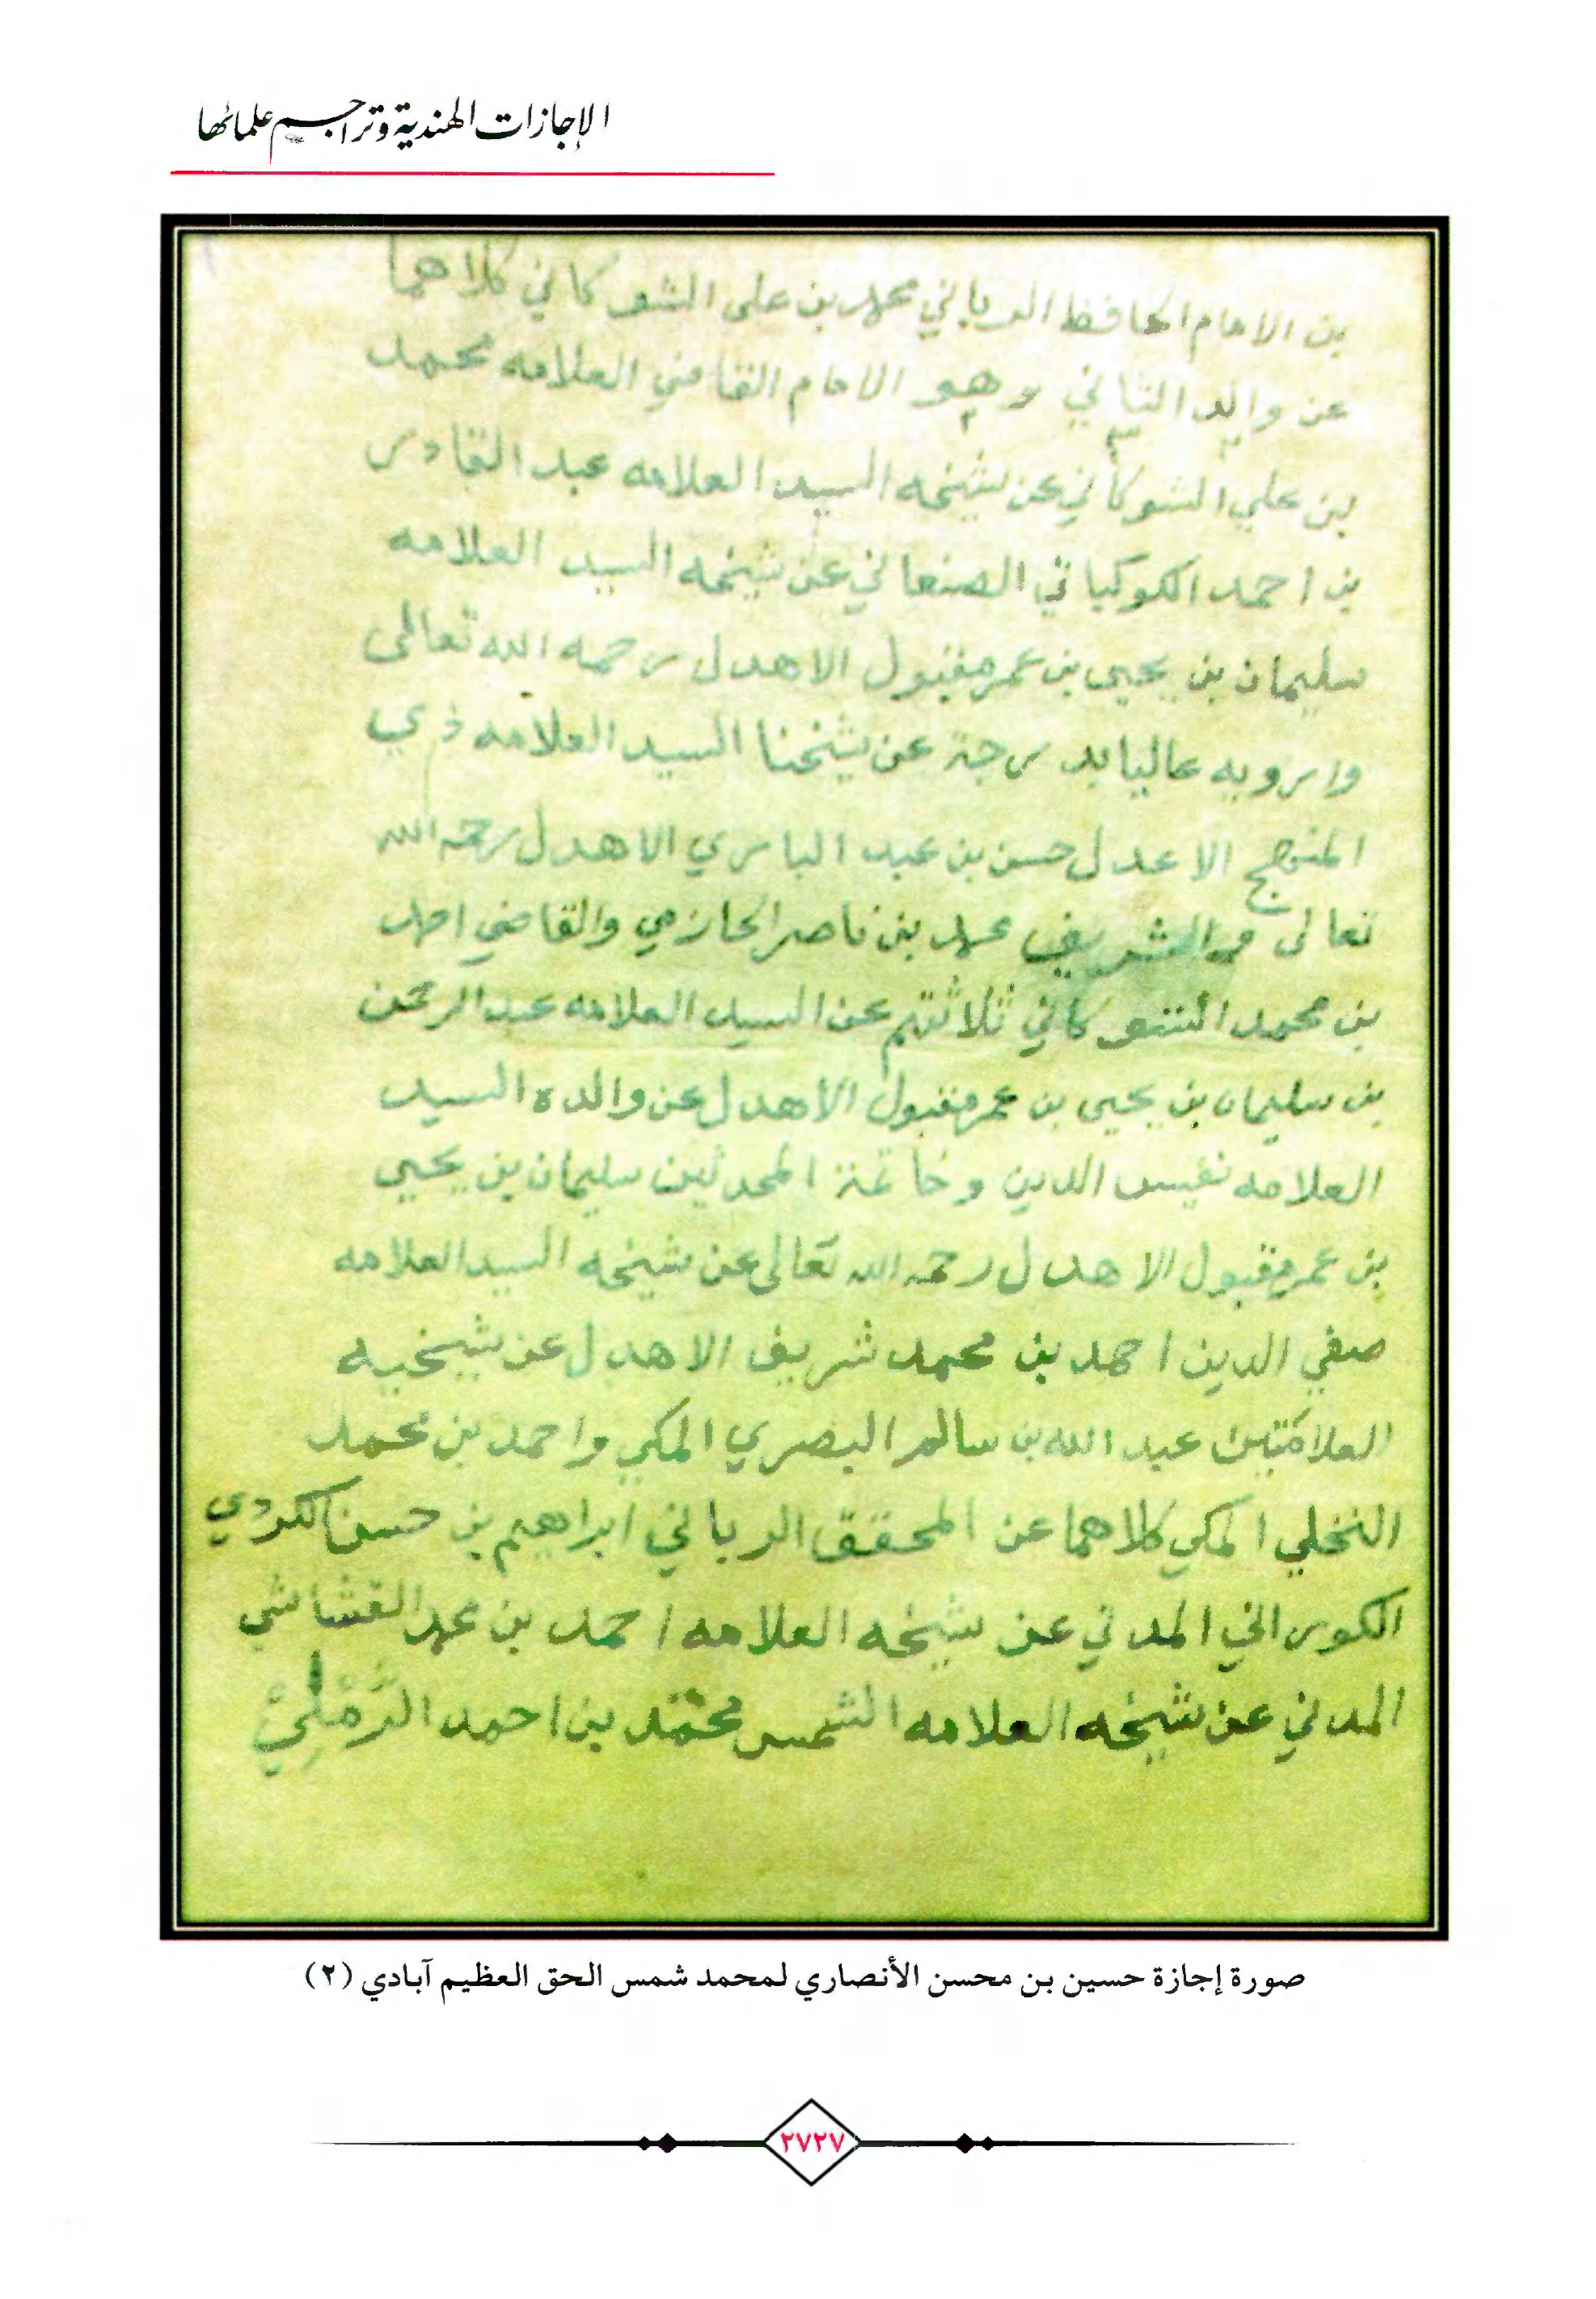 الإجازات الهندية وتراجم علمائها
بن الامام الحافظ الرباني محمد بن علي الشوكاني كلاهما
عن والد الثاني وهو الامام القاضي العلامه محمد
بن علي الشوكاني عن شيخه السيد العلامه عبد القادر
بن احمد الكوكباني الصنعاني عن شيخه السيد العلامه
سليمان بن يحيى بن عمر مقبول الاهدل رحمه الله تعالى
وارويه عاليا بدرجة عن شيخنا السيد العلامه ذي
المنهج الاعدل حسن بن عبد الباري الاهدل رحمه الله
تعالى والشريف محمد بن ناصر الحازمي والقاضي احمد
بن محمد الشوكاني ثلاثتهم عن السيد العلامه عبد الرحمن
بن سليمان بن يحيى بن عمر مقبول الاهدل عن والده السيد
العلامه نفيس الدين وخاتمة المحدثين سليمان بن يحيى
بن عمر مقبول الاهدل رحمه الله تعالى عن شيخه السيد العلامه
صفي الدين احمد بن محمد شريف الاهدل عن شيخيه
العلامتين عبد الله بن سالم البصري المكي واحمد بن محمد
النخلي المكي كلاهما عن المحقق الرباني ابراهيم بن حسن الكردي
الكوراني المدني عن شيخه العلامه احمد بن محمد القشاشي
المدني عن شيخه العلامه الشمس محمّد بن احمد الرَّمْلِيْ
صورة إجازة حسين بن محسن الأنصاري لمحمد شمس الحق العظيم آبادي (٢)
٢٧٢٧